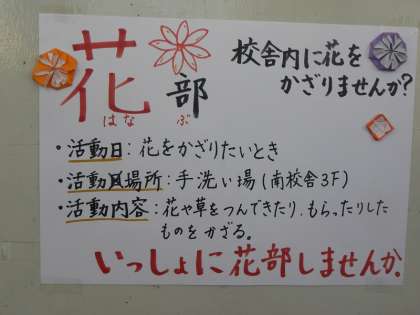 花部
はな ぶ
校舎内に花を
かざりませんか?
・活動日:花をかざりたいとき
・活動場所:手洗い場(南校舎3F)
・活動内容:花や草をつんできたり、もらったりした
ものをかざる。
いっしょに花部しませんか。